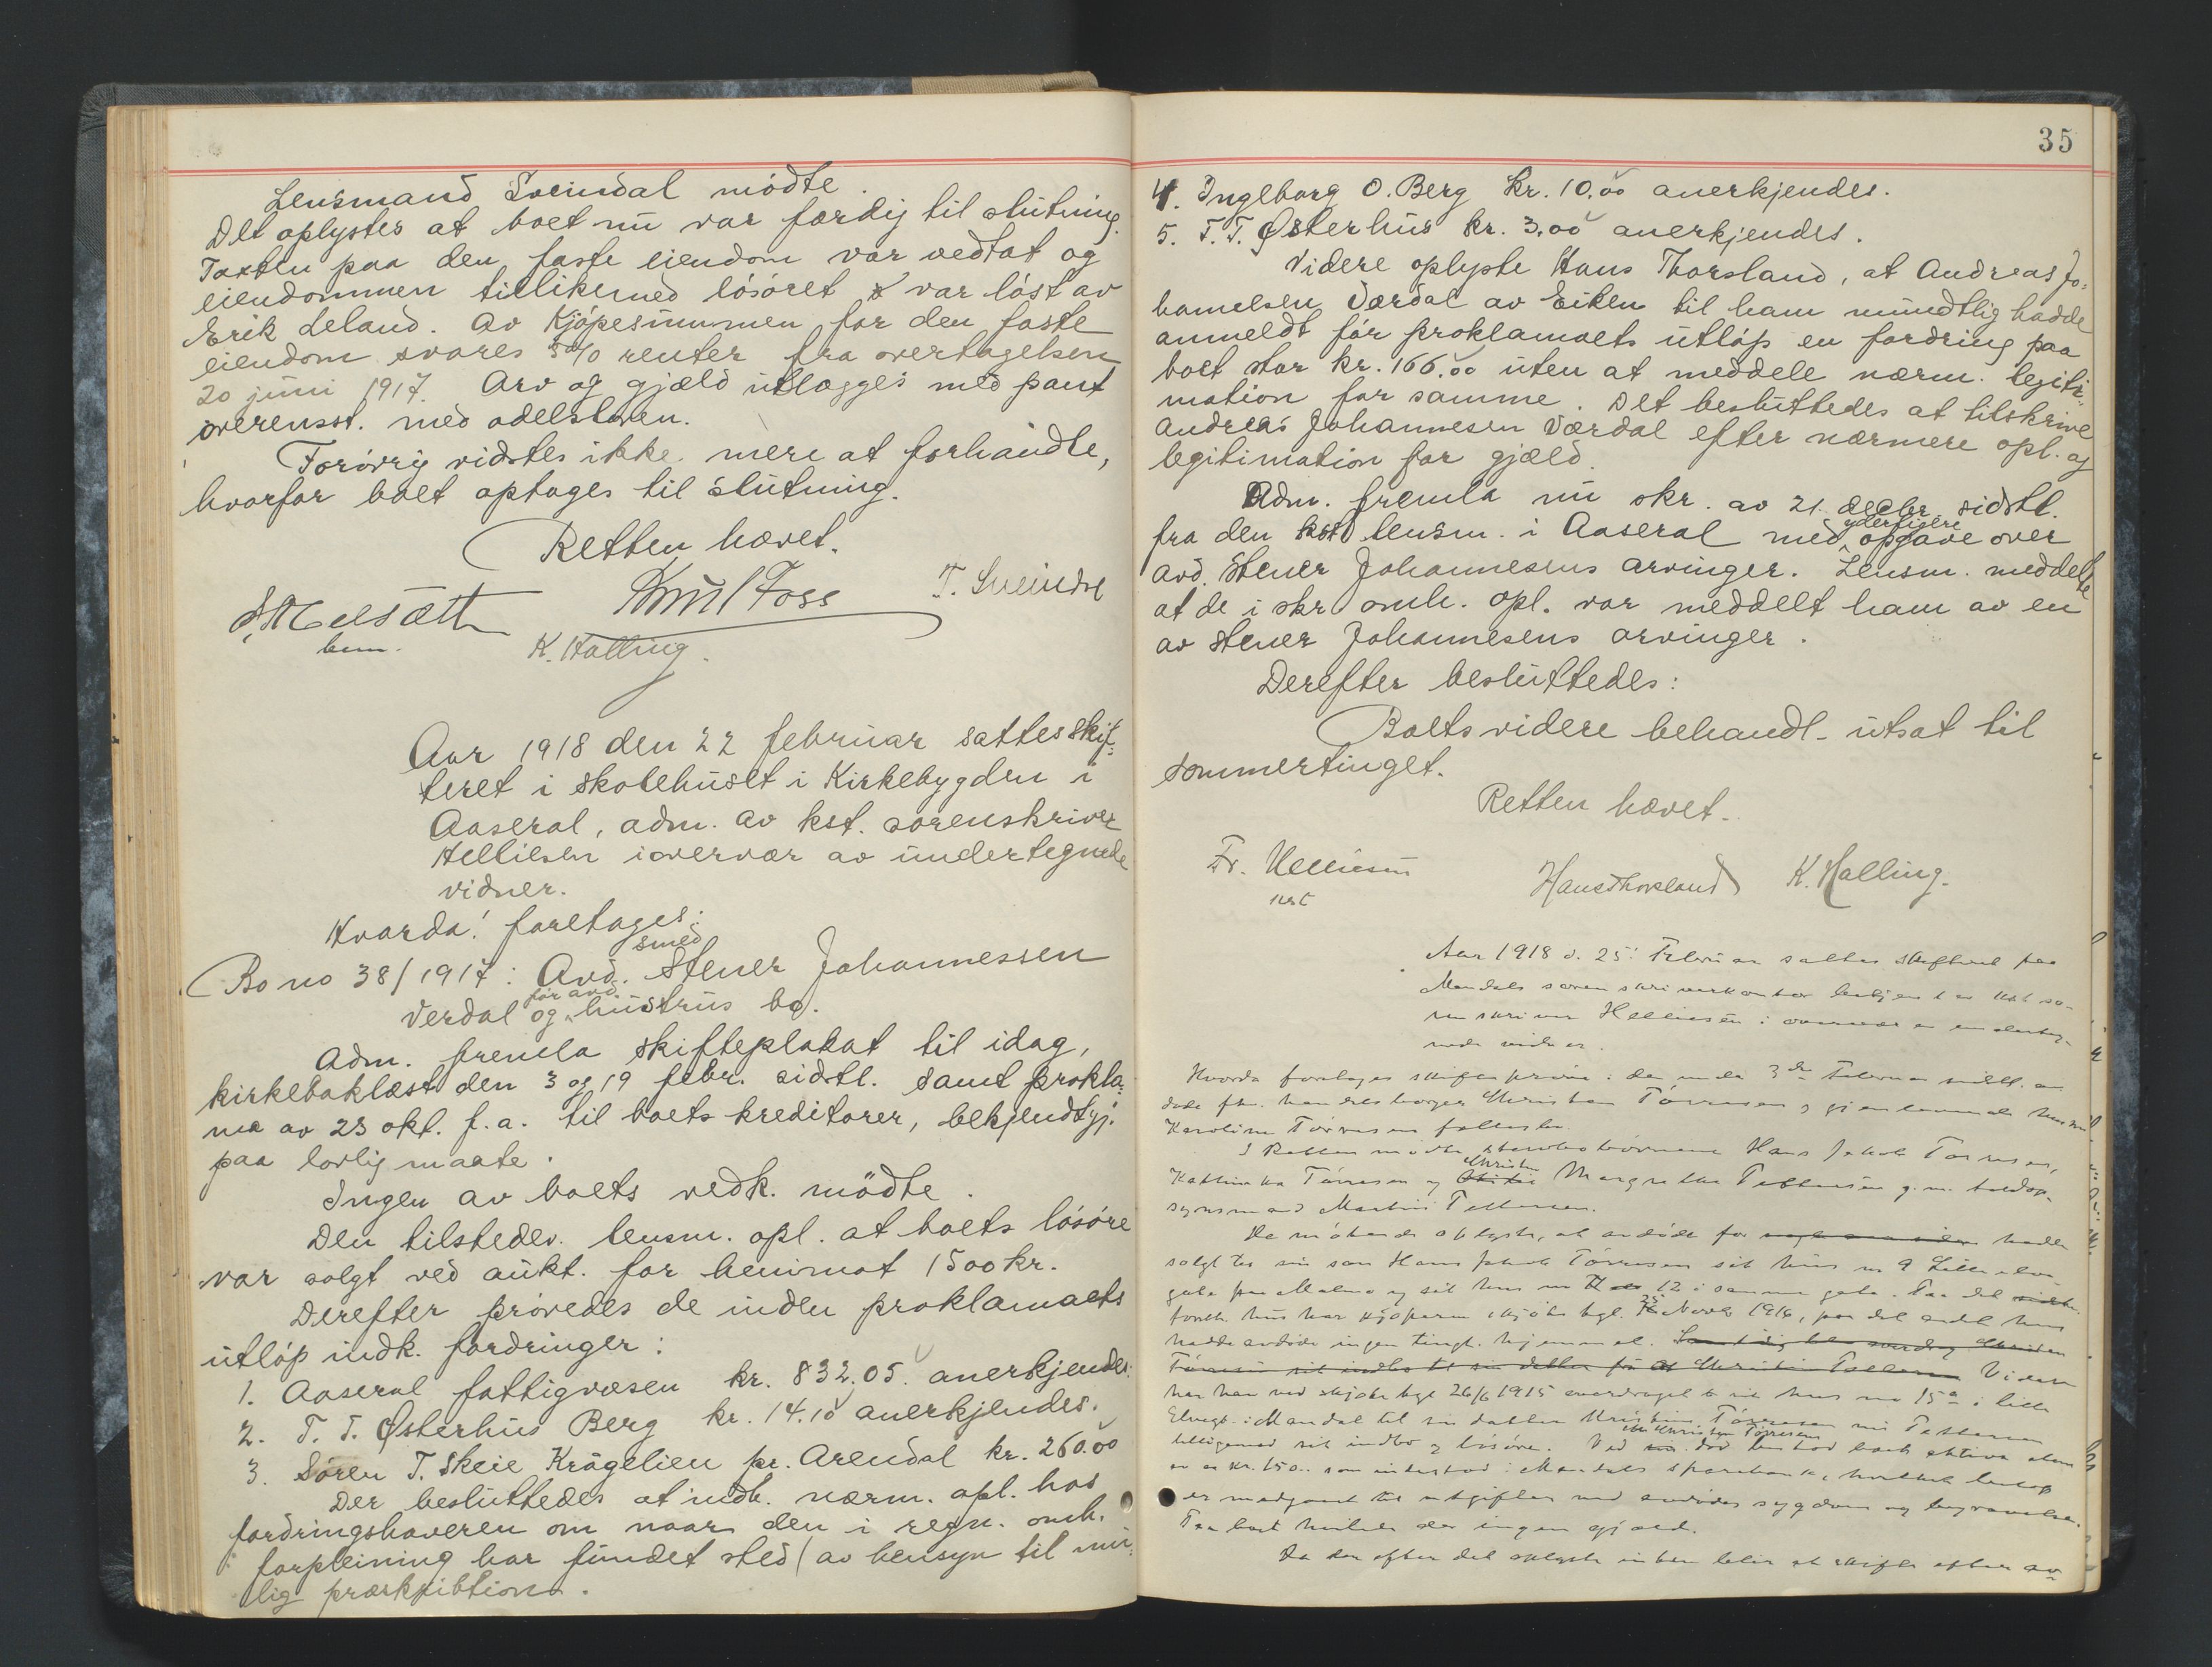 Lensmand Sveindal mödte.
Det oplystes at boet nu var færdig til slutning.
Taxten paa den faste eiendom var vedtat og
eiendommen tillikemed lösöret var löst av
Erik Leland. Av Kjöpesummen for den faste
eiendom svares 5% renter fra overtagelsen
20 juni 1917. Arv og gjæld utlægges med pant
overensst. med odelsloven.
Forövrig vidstes ikke mere at forhandle,
hvorfor boet optages til slutning.
Retten hævet.
Knut Foss T. Sveindal
K. Halling.
Aar 1918 den 22 februar sattes skif-
teret i skolehuset i Kirkebygden i
Aaseral, adm. av kst. sorenskriver
Helliesen i overvær av undertegnede
vidner.
Hvorda! foretages:
Bo no 38/1917: Avd. smed Stener Johannessen
Verdal og för avd. hustrus bo.
Adm. fremla skifteplakat til idag,
kirkebaklæst den 3 og 19 febr. sidstl. samt prokla-
ma av 23 okt. f.a. til boets kreditorer, bekjendtgj.
paa lovlig maate.
Ingen av boets vedk. mödte.
Den tilstedev. lensm. opl. at boets lösöre
var solgt ved aukt. for henimot 1500 kr.
Derefter prövedes de inden proklamaets
utlöp indk. fordringer:
1. Aaseral fattigvæsen kr. 832.05. anerkjendes.
2. T. T. Østerhus Berg kr. 14.10 anerkjendes.
3. Sören T. Skeie Krågelien pr. Arendal kr. 260.00
Der besluttedes at indh. nærm. opl. hos
fordringshaveren om naar den i regn. omh.
forpleining har fundet sted (av hensyn til mu-
lig præskribtion.
35
4. Ingeborg O. Berg kr. 10.00 anerkjendes.
5. T. T. Østerhus kr. 3.00 anerkjendes.
Videre oplyste Hans Thorsland, at Andreas Jo-
hannessen Værdal av Eiken til ham mundtlig hadde
anmeldt för proklamaets utlöp en fordring paa
boet stor kr. 166.00 uten at meddele nærm. legiti-
mation for samme. Det besluttedes at tilskrive
Andreas Johannesen Værdal efter nærmere opl. og
legitimation for gjæld.
Adm. fremla nu skr. av 21. decbr. sidstl.
fra den kst. lensm. i Aaseral med yderligere opgave over
avd. Stener Johannesens arvinger. Lensm. meddelte
at de i skr. omh. opl. var meddelt ham av en
av Stener Johannesens arvinger.
Derefter besluttedes:
Boets videre behandl. utsat til
sommertinget.
Retten hævet.
Fr. Helliesen Hans Thorsland K. Halling.
kst
Aar 1918 d. 25. Februar sattes skifteret paa
Mandals sorenskriverkontor betjent av kst. so-
renskriver Helliesen i overvær av underteg-
nede vidner.
Hvorda foretages skifteprøve: den under 3de Februar sidstl. av
døde fhv. handelsborger Christen Tørresen og gjenlevende hustru
Karoline Tørresens fællesbo.
I Retten mødte stervbobørnene Hans Jakob Tørresen,
Kathinka Tørresen og Christine Margrethe Pettersen g. m. toldop-
synsmand Martin Pettersen.
De møtende oplyste, at avdøde for hadde
solgt til sin søn Hans Jakob Tørresen sit hus no 9 Lille elve-
gate paa Malmø og sit hus no 12 i samme gate. Paa det
førstn. hus har kjøperen skjøte tgl. 25 Novbr 1916, paa det andet hus
hadde avdøde ingen tingl. hjemmel.
Videre
har han ved skjøte tgl 26/6 1915 overdraget sit hus no 15a i lille
Elvegt. i Mandal til sin datter Kristine Tørresen nu Pettersen
tilligemed sit indbo og løsøre. Ved Christen Tørresens død bestod boets aktiva alene
av kr. 150.. som indestod i Mandals sparebank, hvilket beløp
er medgaat til utgifter med avdødes sygdom og begravelse.
Paa boet hviler der ingen gjæld.
Da der efter det oplyste intet blir at skifte efter av-